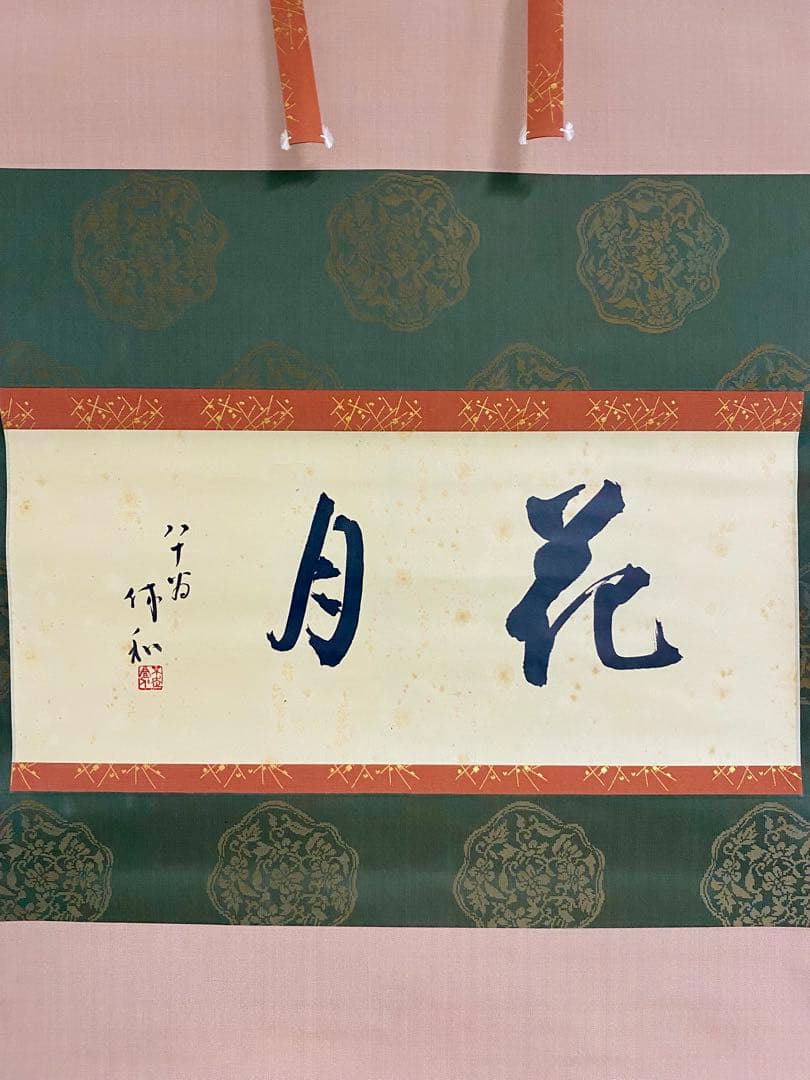 花月
八十翁
和